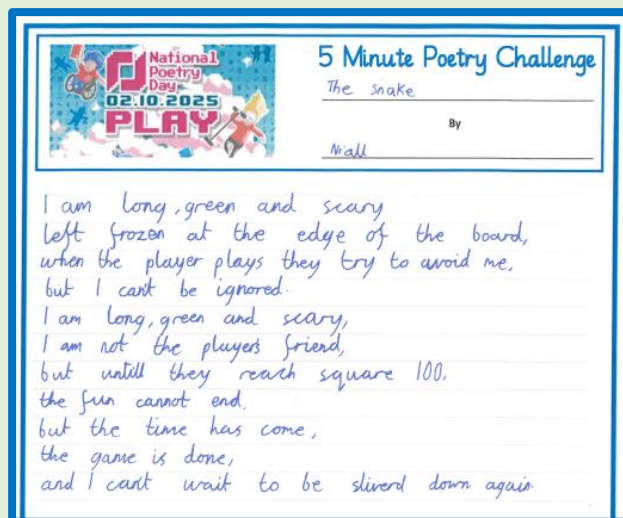 National
Poetry
Day
02.10.2025
PLAY
5 Minute Poetry Challenge
The Snake
By
Niall
I am long, green and scary
left frozen at the edge of the board,
when the player plays they try to avoid me,
but I can't be ignored.
I am long, green and scary,
I am not the players friend,
but untill they reach square 100.
the fun cannot end.
but the time has come,
the game is done,
and I can't wait to be sliverd down again.